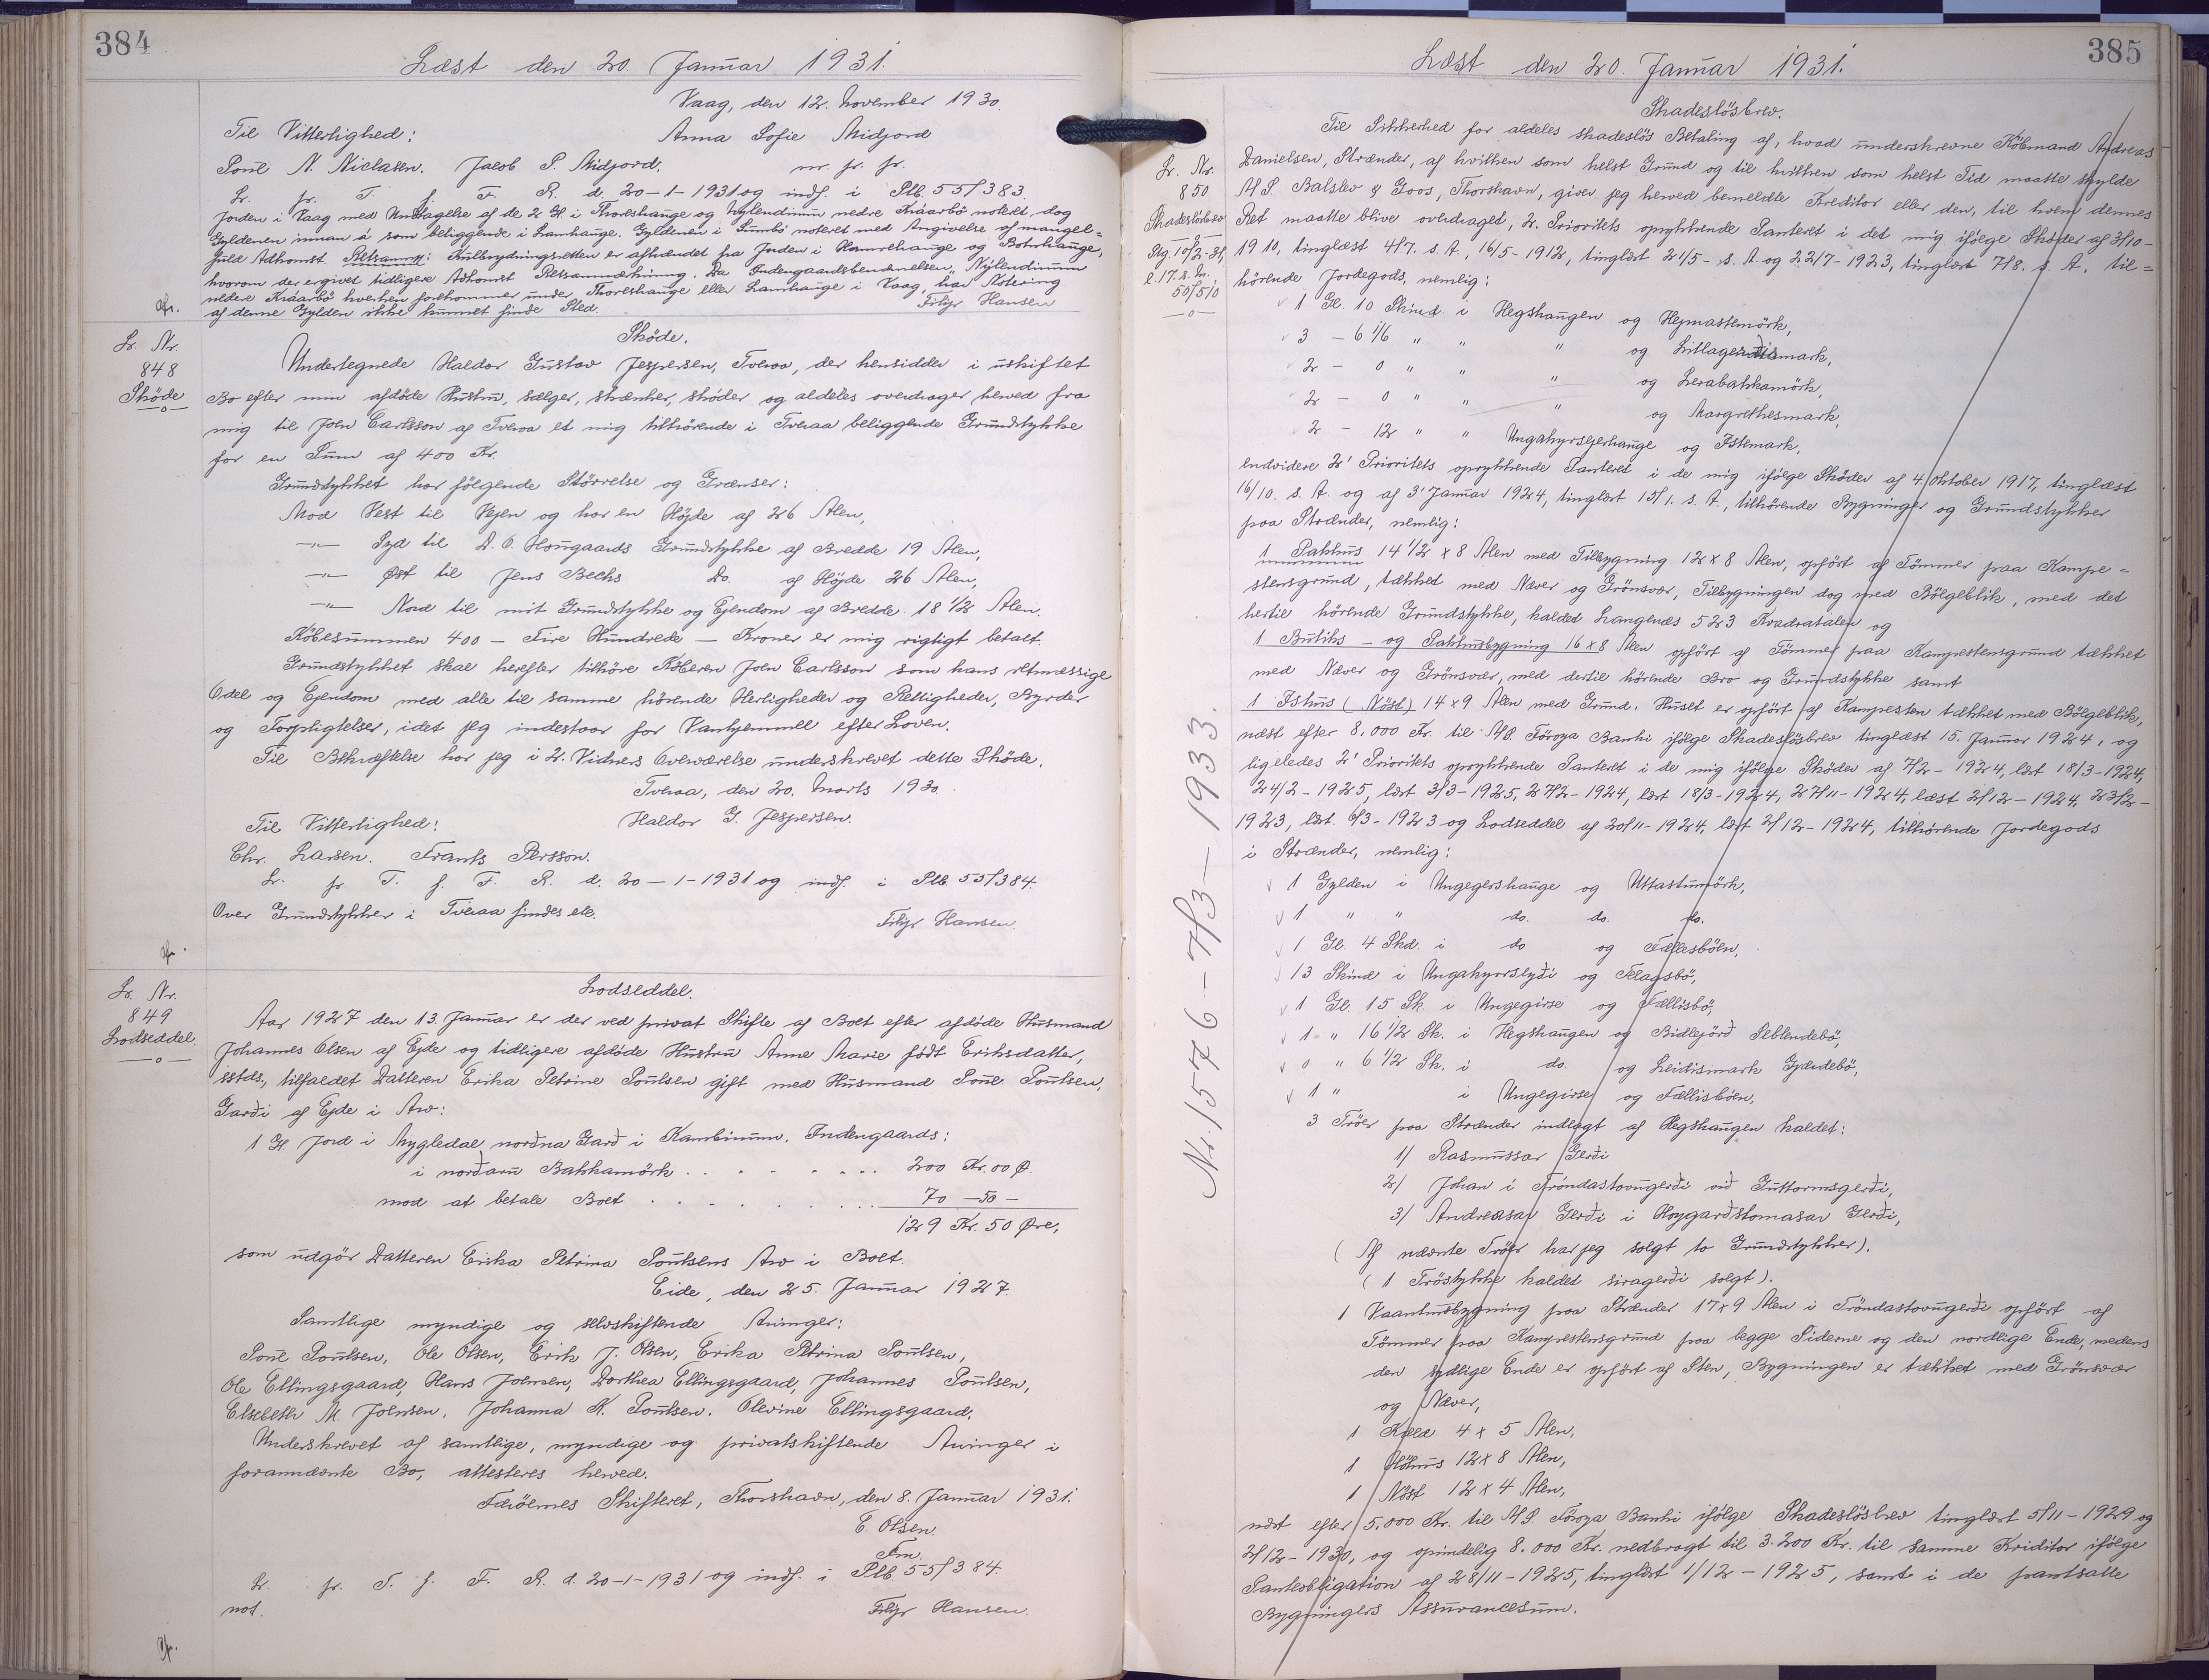 384
Læst den 20. Januar 1931.
Vaag, den 12. November 1930.
Til Vitterlighed: Anna Sofie Midjord
Poul N. Nielsen. Jacob P. Midjord. nr. fr. fr.
Lr. fr. T. f. F. R. d. 20-1-1931 og indf. i Plb. 55/383.
Jorden i Vaag med Undtagelse af de 2 Gl. i Thoreshauge og Nylendinum nedre Kráarbö noteret, dog
Gyldenen innan á som beliggende i Lamhauge. Gyldenen i Sumbö noteret med Angivelse af mangel=
fuld Adkomst. Retsanm: Kulbrydningsretten er afhændet fra Jorden i Hamrehauge og Botnhauge,
hvorom der ergivet tidligere Adkomst Retsanmærkning. Da Indengaardsbenævnelsen "Nýlendinum
nedere Kráarbö hverken forekommer under Thoreshauge eller Lamhauge i Vaag, har Notering
af denne Gylden ikke kunnet finde Sted. Filip Hansen
Lr. Nr.
848
Sköde
Sköde.
Undertegnede Haldor Gustav Jespersen, Tveraa, der hensidder i uskiftet
Bo efter min afdöde Hustru, sælger, skænker, sköder og aldeles overdrager herved fra
mig til Joen Carlsson af Tveraa et mig tilhörende i Tveraa beliggende Grundstykke
for en Sum af 400 Kr.
Grundstykket har fölgende Störrelse og Grænser:
Mod Vest til Vejen og har en Höjde af 26 Alen,
—"— Syd til D. O. Hougaards Grundstykke af Bredde 19 Alen,
—"— Øst til Jens Bechs Do. af Höjde 26 Alen,
—"— Nord til mit Grundstykke og Ejendom af Bredde 18 1/2 Alen.
Köbesummen 400 — Fire Hundrede — Kroner er mig rigtigt betalt.
Grundstykket skal herefter tilhöre Köberen Joen Carlsson som hans retmæssige
Odel og Ejendom med alle til samme hörende Herligheder og Rettigheder, Byrder
og Forpligtelser, idet jeg indestaar for Vanhjemmel efter Loven.
Til Bekræftelse har jeg i 2. Vidners Overværelse underskrevet dette Sköde.
Tveraa, den 20. Marts 1930.
Til Vitterlighed: Haldor G. Jespersen.
Chr. Larsen. Frants Persson.
Lr. fr. T. f. F. R. d. 20-1-1931 og indf. i Plb. 55/384.
Over Grundstykker i Tveraa findes etc.
Filip Hansen.
Lr. Nr.
849
Lodseddel.
Lodseddel.
Aar 1927 den 13. Januar er der ved privat Skifte af Boet efter afdöde Husmand
Johannes Olsen af Ejde og tidligere afdöde Hustru Anne Marie född Eriksdatter,
isstds., tilfaldet Datteren Erika Petrine Poulsen gift med Husmand Poul Poulsen,
Garði af Ejde i Arv:
1 Gl. Jord i Mygledal norðna Garð i Kambinum. Indengaards:
i norðaru Bakkamörk . . . . . . . . 200 Kr. 00 Ø.
mod at betale Boet . . . . . . . . 70 - 50 -
129 Kr. 50 Øre,
som udgör Datteren Erika Petrina Poulsens Arv i Boet.
Eide, den 25. Januar 1927.
Samtlige myndige og selvskiftende Arvinger:
Poul Poulsen, Ole Olsen, Erik J. Olsen, Erika Petrina Poulsen,
Ole Ellingsgaard, Hans Joensen, Dorthea Ellingsgaard, Johannes Poulsen,
Elsebeth M. Joensen. Johanna K. Poulsen. Olevine Ellingsgaard.
Underskrevet af samtlige, myndige og privatskiftende Arvinger i
forannævnte Bo, attesteres herved.
Færöernes Skifteret, Thorshavn, den 8. Januar 1931.
E. Olsen.
Fm.
Lr. fr. T. f. F. R. d. 20-1-1931 og indf. i Plb. 55/384.
not. Filip Hansen.
385
Læst den 20. Januar 1931.
Lr. Nr.
850
Skadeslösbrev
Stg. 10/2-31,
l. 17. s. M.
55/510
Nr. 1576 - 7/3 - 1933.
Skadeslösbrev.
Til Sikkerhed for aldeles skadeslös Betaling af, hvad underskrevne Köbmand Andreas
Danielsen, Strænder, af hvilken som helst Grund og til hvilken som helst Tid maatte skylde
A/S. Balslev & Goos, Thorshavn, giver jeg herved bemeldte Kreditor eller den, til hvem dennes
Ret maatte blive overdraget, 2. Prioritets oprykkende Panteret i det mig ifölge Sköder af 3/10-
1910, tinglæst 4/7. s. A., 16/5-1912, tinglæst 21/5- s. A. og 22/7-1923, tinglæst 7/8. s. A. til=
hörende Jordegods, nemlig:
1 Gl. 10 Skind i Hegshaugen og Hejmastemörk,
3 - 6 1/6 " " " og Litlagerdismark,
2 - 0 " " " og Lerabakkamörk,
2 - 0 " " " og Margrethesmark,
2 - 12 " " Ungahyrsgerhauge og Istemark,
endvidere 2' Prioritets oprykkende Panteret i de mig ifölge Sköder af 4. Oktober 1917, tinglæst
16/10. s. A. og af 3' Januar 1924, tinglæst 15/1. s. A., tilhörende Bygninger og Grundstykker
paa Strænder, nemlig:
1 Pakhus 14 1/2 x 8 Alen med Tilbygning 12 x 8 Alen, opfört af Tömmer paa Kampe=
stensgrund, tækket med Næver og Grönsvær, Tilbygningen dog med Bölgeblik, med det
hertil hörende Grundstykke, kaldet Langenæs 523 Kvadratalen og
1 Butiks - og Pakhusbygning 16 x 8 Alen opfört af Tömmer paa Kampestensgrund tækket
med Næver og Grönsvær, med dertil hörende Bro og Grundstykke samt
1 Ishus (Nöst) 14 x 9 Alen med Grund. Huset er opfört af Kampesten tækket med Bölgeblik,
næst efter 8.000 Kr. til A/S. Föroya Banki ifölge Skadeslösbrev tinglæst 15. Januar 1924, og
ligeledes 2' Prioritets oprykkende Panteret i de mig ifölge Sköder af 7/2-1924, læst 18/3-1924,
24/2-1925, læst 3/3-1925, 27/2-1924, læst 18/3-1924, 27/11-1924, læst 2/12-1924, 23/2-
1923, læst. 6/3-1923 og Lodseddel af 20/11-1924, læst 2/12-1924, tilhörende Jordegods
i Strænder, nemlig:
1 Gylden i Ungegershauge og Uttastumörk,
1 " " do. do. do.
1 Gl. 4 Skd. i do og Fællesböen,
13 Skind i Ungahyrrslyði og Felagsbö,
1 Gl. 15 Sk. i Ungegirse og Fællisbö,
1 " 16 1/2 Sk. i Hegshaugen og Bidlejörð Seblendebö,
0 " 6 1/2 Sk. i do. og Leidismark Gjærdebö,
1 " i Ungegirse og Fællisböen,
3 Tröer paa Strænder indlagt af Hegshaugen kaldet:
1/ Rasmussar Gerði
2/ Johan i Tróndastovugerði við Guttormsgerði,
3/ Andreasar Gerði i Hoygarðstomasar Gerði,
(Af nævnte Tröer har jeg solgt to Grundstykker).
(1 Tröstykke kaldet siragerði solgt).
1 Vaanhusbygning paa Strænder 17x9 Alen i Tróndastovugerði opfört af
Tömmer paa Kampestensgrund paa begge Siderne og den nordlige Ende, medens
den sydlige Ende er opfört af Sten, Bygningen er tækket med Grönsvær
og Næver,
1 Kjeld 4 x 5 Alen,
1 Höhus 12x8 Alen,
1 Nöst 12 x 4 Alen,
næst efter 5.000 Kr. til A/S. Föroya Banki ifölge Skadeslösbrev tinglæst 5/11-1929 og
2/12-1930, og oprindelig 8.000 Kr. nedbragt til 3.200 Kr. til samme Kreditor ifölge
Panteobligation af 28/11-1925, tinglæst 1/12-1925, samt i de pantsatte
Bygningers Assurancesum.